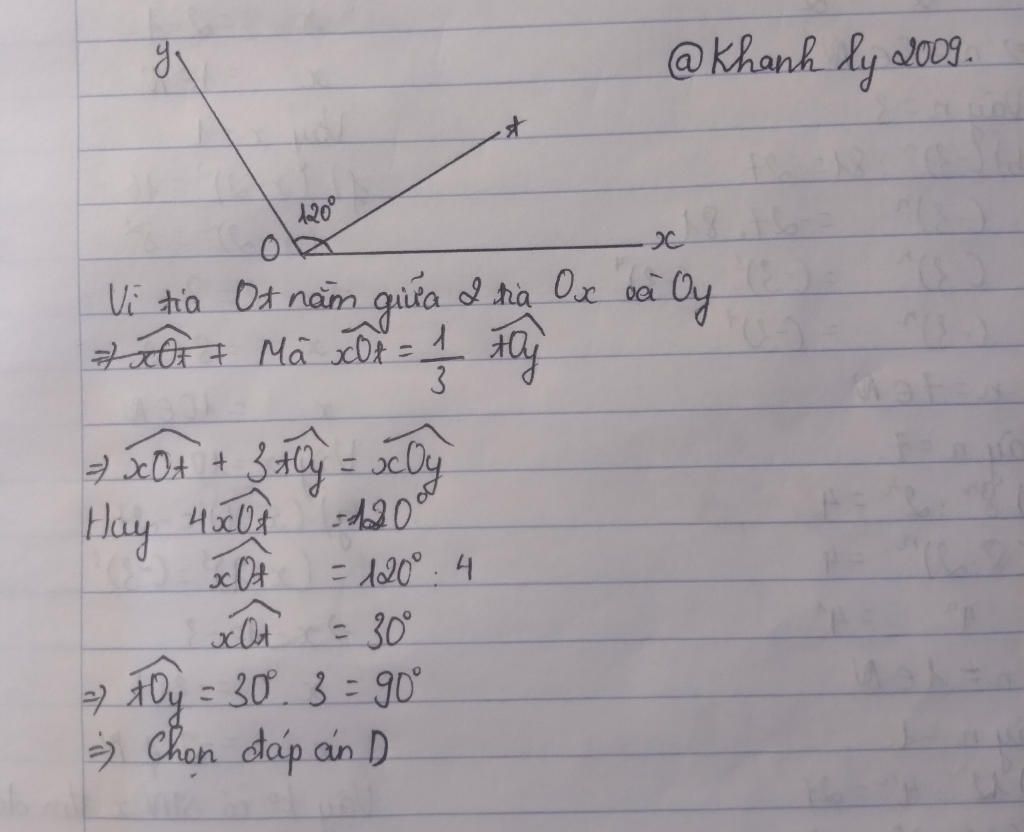 @Khanh ly 2009.
y
t
120°
O
x
Vì tia Ot nằm giữa 2 tia Ox và Oy
⇒ xOt + Mà xOt = 1/3 tOy
⇒ xOt + 3tOy = xOy
Hay 4xOt = 120°
xOt = 120° : 4
xOt = 30°
⇒ tOy = 30°. 3 = 90°
⇒ Chọn đáp án D